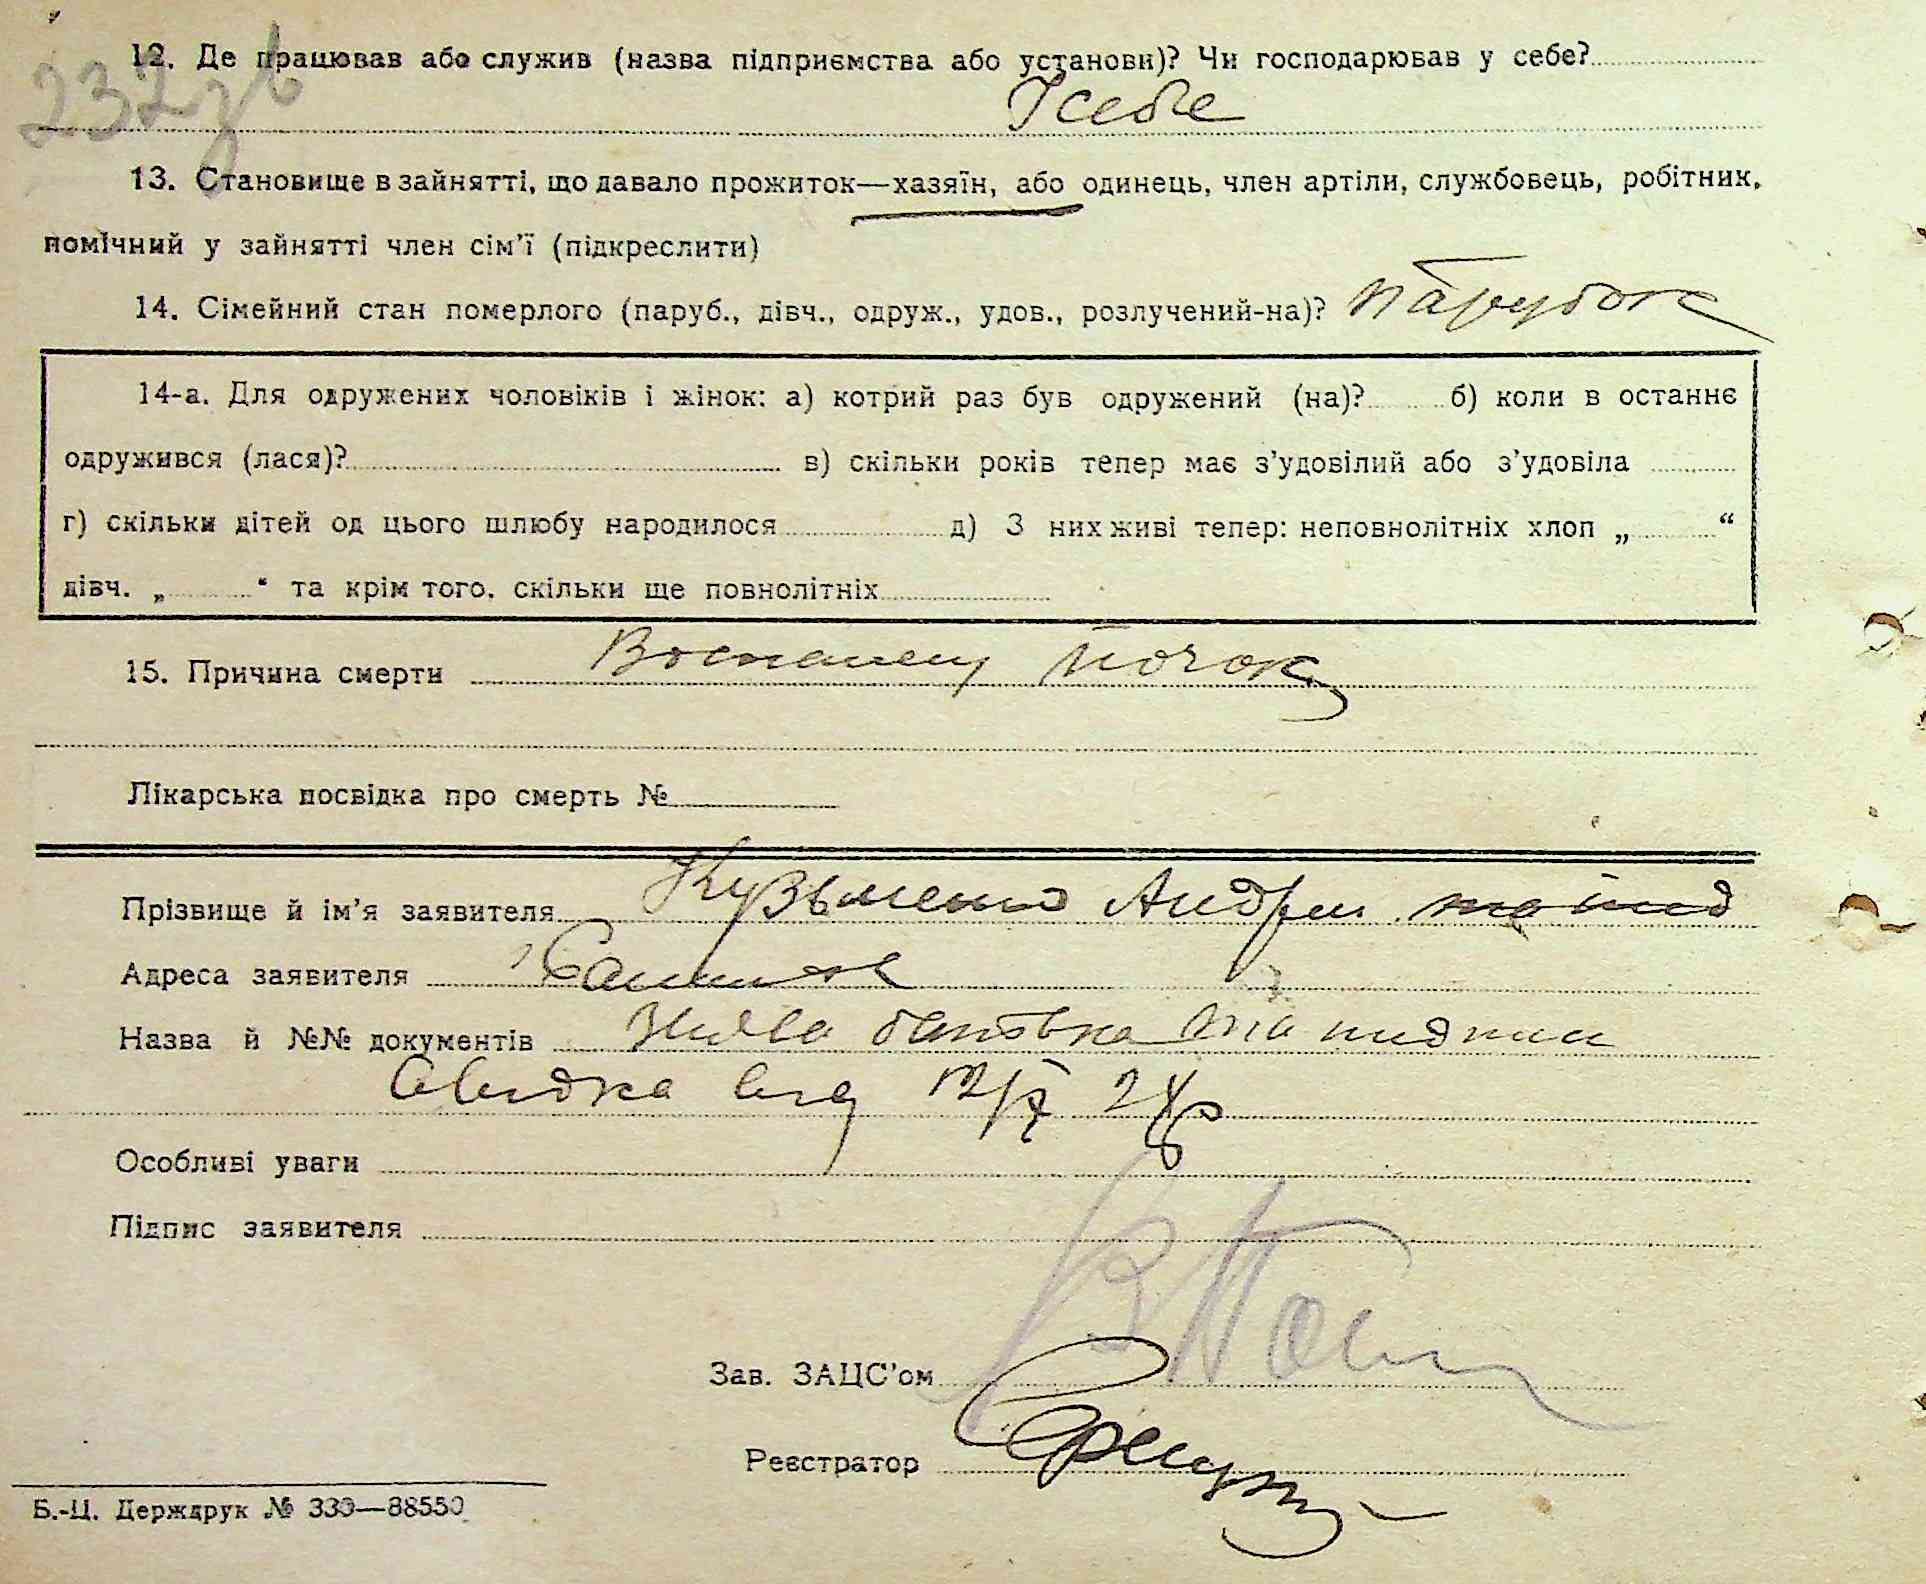 12. Де працював або служив (назва підприємства або установи)? Чи господарював у себе?
232 зв
У себе
13. Становище в зайнятті, що давало прожиток—хазяїн, або одинець, член артіли, службовець, робітник,
помічний у зайнятті член сім'ї (підкреслити)
14. Сімейний стан померлого (паруб., дівч., одруж., удов., розлучений-на)? парубок
14-а. Для одружених чоловіків і жінок: а) котрий раз був одружений (на)? б) коли в останнє
одружився (лася)? в) скільки років тепер має з'удовілий або з'удовіла
г) скільки дітей од цього шлюбу народилося д) З них живі тепер: неповнолітніх хлоп „ “
дівч. „ “ та крім того, скільки ще повнолітніх
15. Причина смерти почок
Лікарська посвідка про смерть №
Прізвище й ім'я заявителя Кузьменко Андрей
Адреса заявителя
Назва й №№ документів
12/X
Особливі уваги
Підпис заявителя
Зав. ЗАЦС'ом
Реєстратор
Б.-Ц. Держдрук № 339—88550